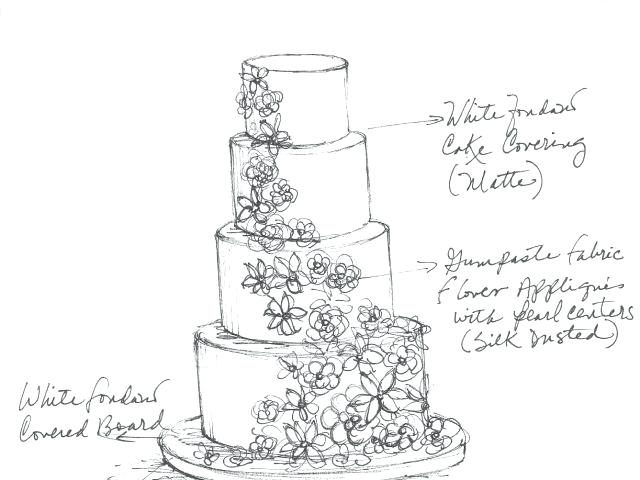 White fondant
Cake Covering
(Matte)
Gumpaste fabric
flower Appliqués
with pearl centers
(Silk Dusted)
White fondant
Covered Board